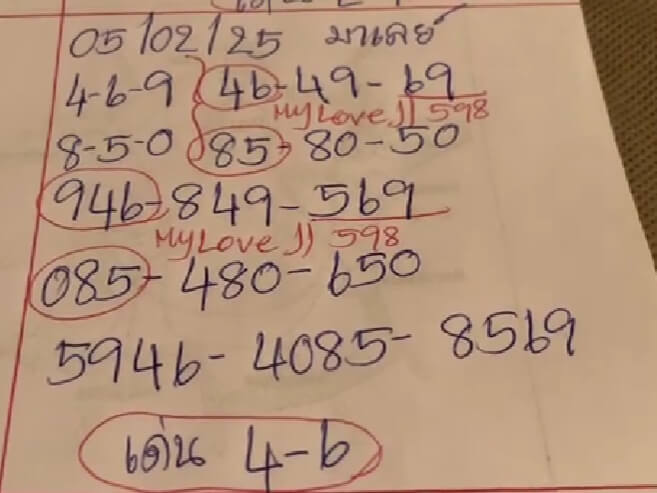 05/02/25 มาเลย์
4-6-9 46-49-69
MyLove JJ 598
8-5-0 85-80-50
946-849-569
MyLove JJ 598
085-480-650
5946-4085-8569
เด่น 4-6